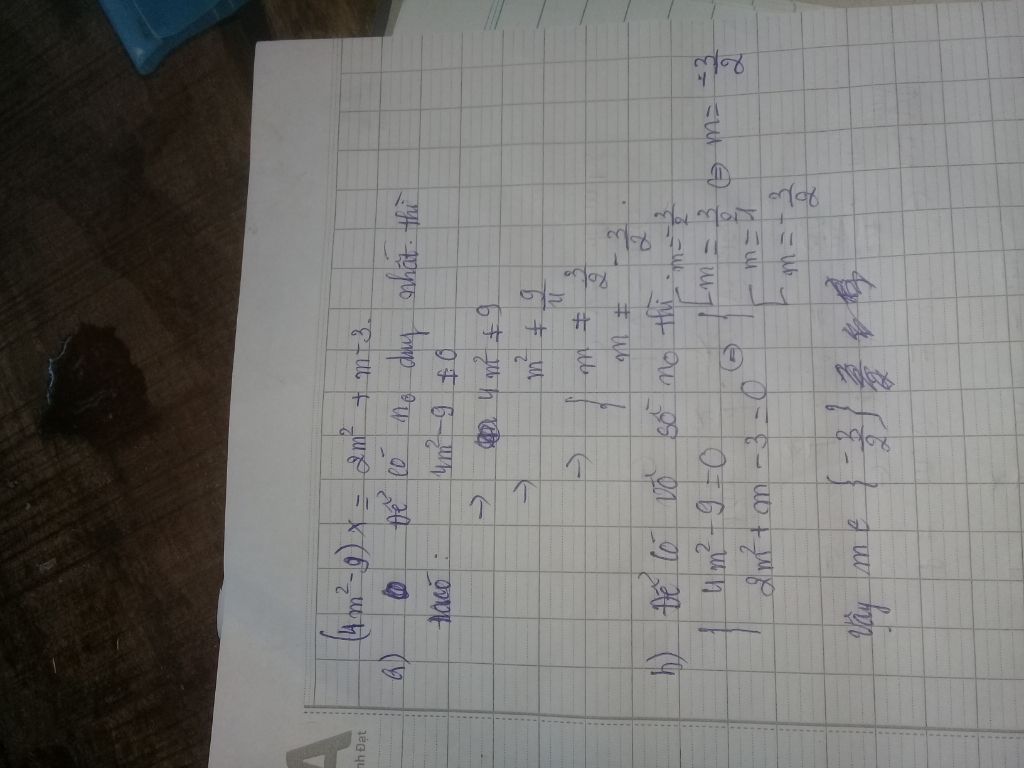 (4m² - 9) x = 2m² + m - 3.
a) Để có n₀ duy nhất thì
4m² - 9 ≠ 0
→ 4m² ≠ 9
→ m² ≠ 9/4
→ { m ≠ 3/2
m ≠ -3/2.
b) Để có vô số n₀ thì:
{ 4m² - 9 = 0
2m² + m - 3 = 0
⇔ { [ m = 3/2
m = -3/2
[ m = 1
m = -3/2
⇔ m = -3/2
Vậy m ∈ { -3/2 }
A
nh Đạt